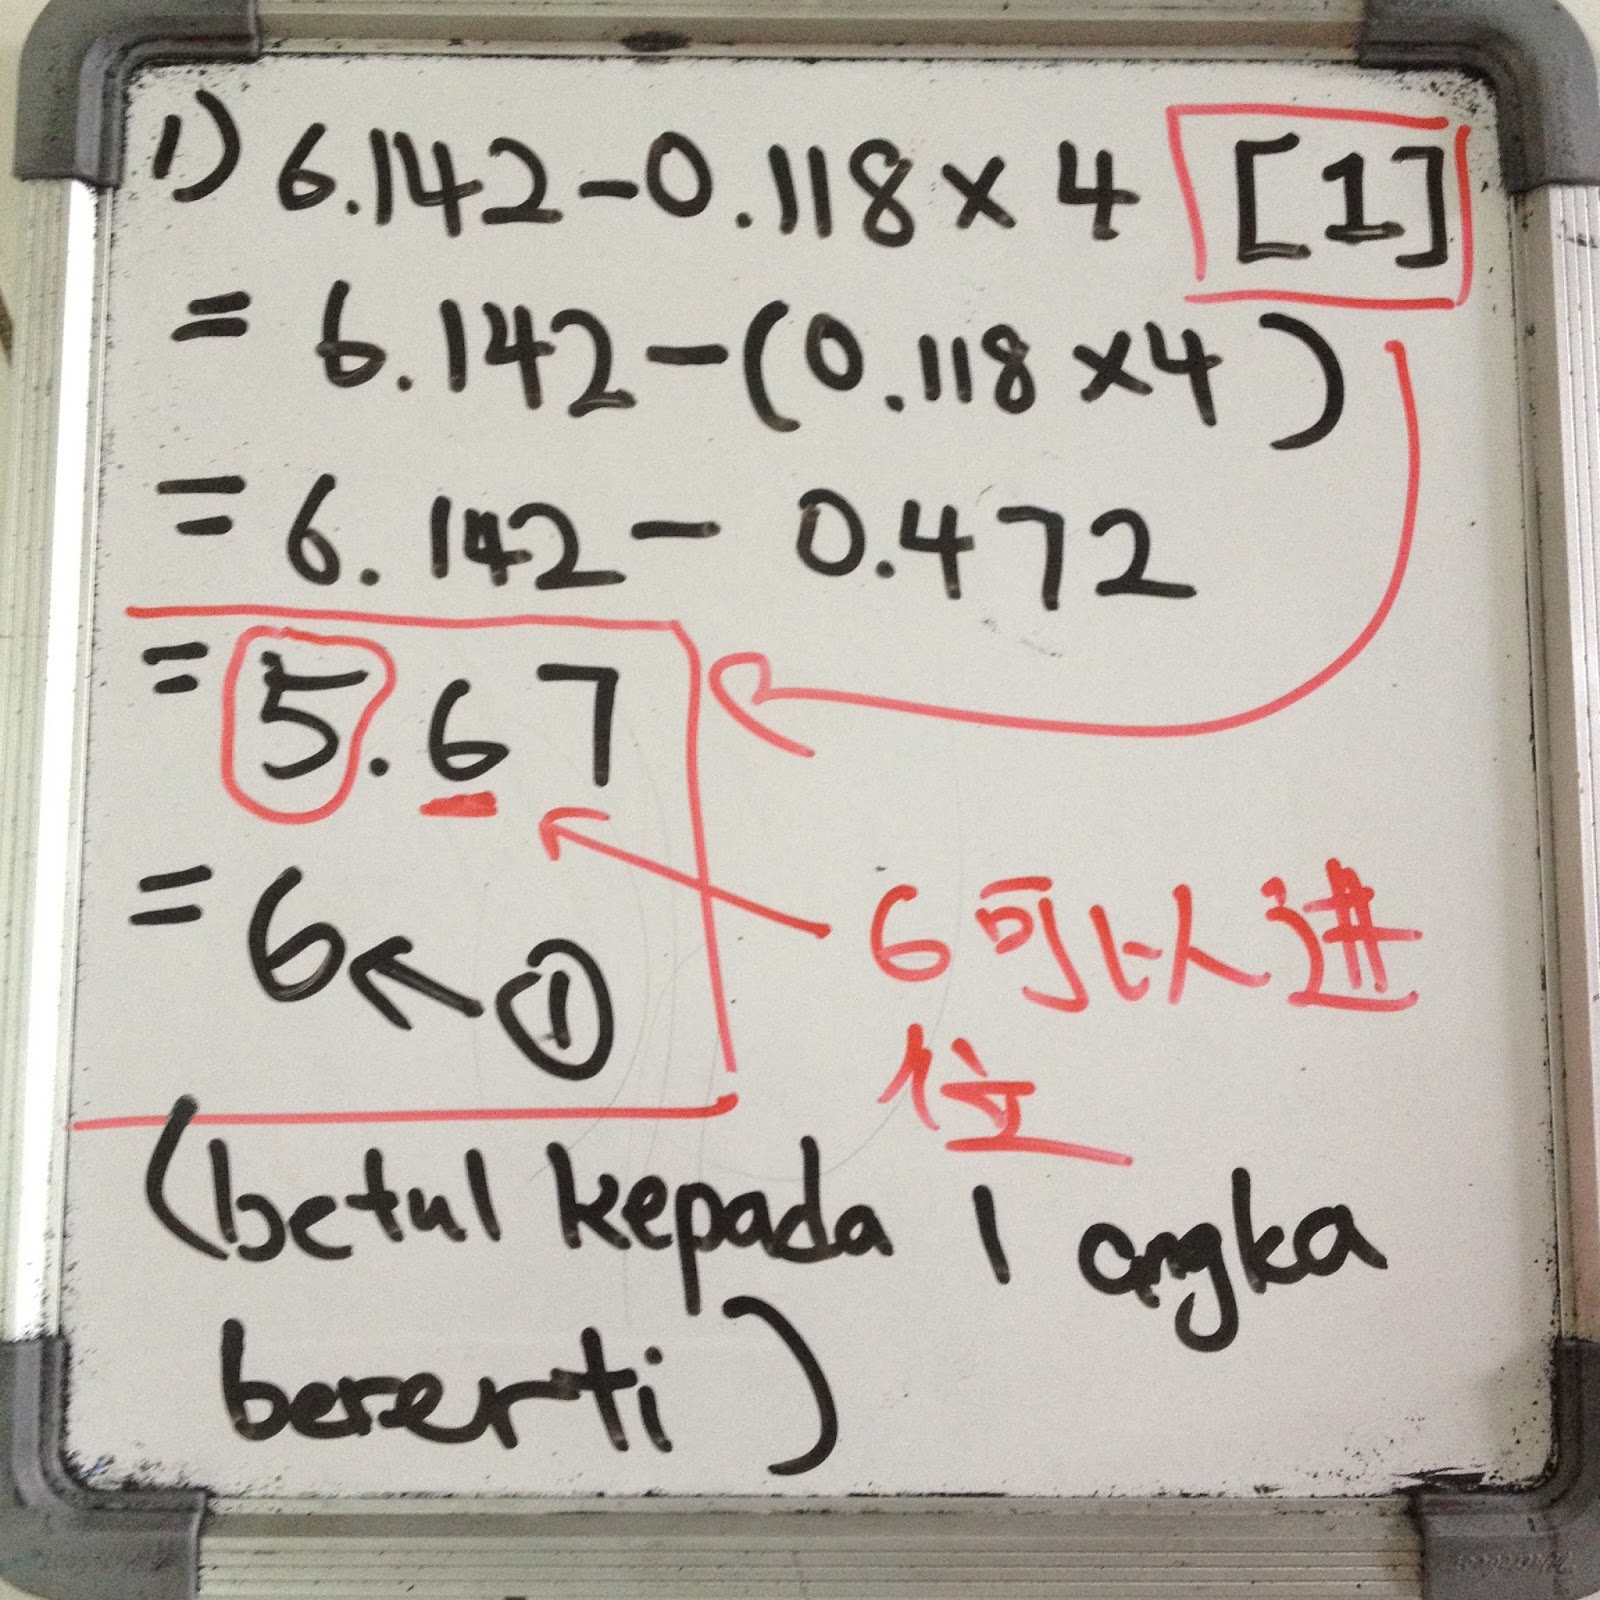 1) 6.142-0.118×4 [1]
= 6.142-(0.118×4)
= 6.142- 0.472
= 5.67
= 6 ①
6可以进
位
(betul kepada 1 angka
bererti)